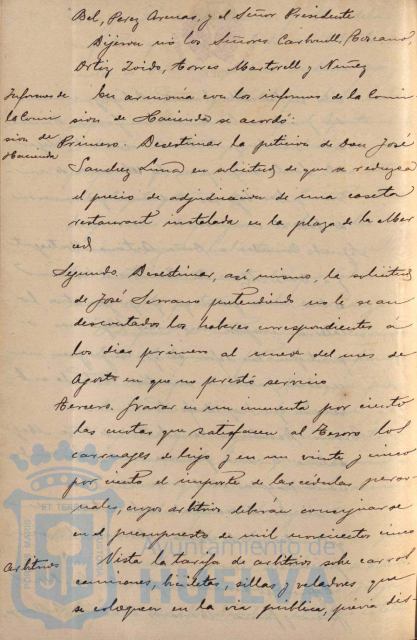 Bel, Perez Arenas, y el Señor Presidente
Dijeron no los Señores Carbonell, Toscano
Ortiz Zoido, Torres Martorell y Nuñez
Informes de la Comi
sion de
Hacienda
En armonia con los informes de la Comi
sion de Hacienda se acordó:
Primero. Desestimar la peticion de Don José
Sanchez Luna en solicitud de que se reduzca
el precio de adjudicacion de una caseta
restaurant instalada en la plaza de la Mer
ced
Segundo. Desestimar, asi mismo, la solicitud
de José Serrano pretendiendo no le sean
descontados los haberes correspondientes á
los dias primero al nueve del mes de
Agosto en que no prestó servicio
Tercero. Gravar en un cincuenta por ciento
las cuotas que satisfacen al Tesoro los
carruajes de lujo y en un veinte y cinco
por ciento el importe de las cédulas perso
nales, cuyos arbitrios deberán consignarse
en el presupuesto de mil novecientos cinco
Arbitrios
Vista la tarifa de arbitrios sobre carros
camiones, bicicletas, sillas y veladores que
se coloquen en la via pública, previa dis-
Ayuntamiento de
HUELVA